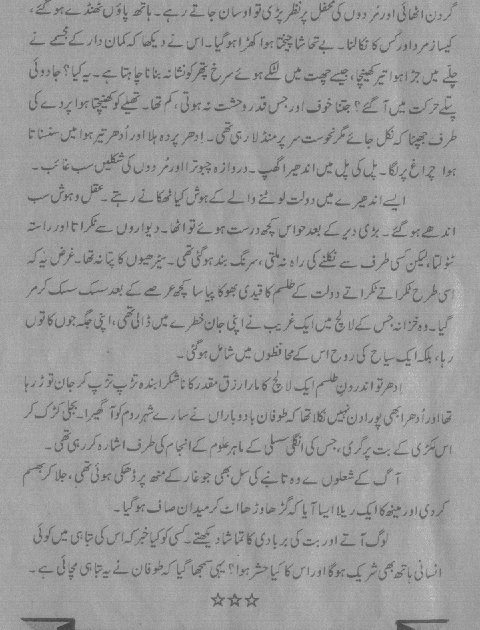 گردن اٹھائی اور مُردوں کی محفل پر نظر پڑی تو اوسان جاتے رہے۔ ہاتھ پاؤں ٹھنڈے ہو گئے،
کیسا زمرد اور کس کا نکالنا۔ بے تحاشا چیختا ہوا کھڑا ہو گیا۔ اس نے دیکھا کہ کمان دار کے مجسمے نے
چلّے میں جڑا ہوا تیر کھینچا، جیسے چھت میں لٹکے ہوئے سرخ پتھر کو نشانہ بنانا چاہتا ہے۔ یہ کیا؟ جادوئی
پتلے حرکت میں آ گئے؟ جتنا خوف اور جس قدر وحشت نہ ہوتی، کم تھا۔ تھیلے کو کھینچتا ہوا پردے کی
طرف جھپٹا کہ نکل جائے مگر نحوست سر پر منڈلا رہی تھی۔ اِدھر پردہ ہلا اور اُدھر تیر ہوا میں سنسناتا
ہوا چراغ پر لگا۔ پل کی پل میں اندھیرا گھپ۔ دروازہ چبوترا اور مُردوں کی شکلیں سب غائب۔
ایسے اندھیرے میں دولت لوٹنے والے کے ہوش کیا ٹھکانے رہتے۔ عقل و ہوش سب
اندھے ہو گئے۔ بڑی دیر کے بعد حواس کچھ درست ہوئے تو اٹھا۔ دیواروں سے ٹکراتا اور راستہ
ٹٹولتا، لیکن کسی طرف سے نکلنے کی راہ نہ ملتی، سرنگ بند ہو گئی تھی۔ سیڑھیوں کا پتا نہ تھا۔ غرض یہ کہ
اسی طرح ٹکراتے ٹکراتے دولت کے طلسم کا قیدی بھوکا پیاسا کچھ عرصے کے بعد سسک سسک کر مر
گیا۔ وہ خزانہ جس کے لالچ میں ایک غریب نے اپنی جان خطرے میں ڈالی تھی، اپنی جگہ جوں کا توں
رہا، بلکہ ایک سیاح کی روح اس کے محافظوں میں شامل ہو گئی۔
اِدھر تو اندرونِ طلسم ایک لالچ کا مارا رزق مقدر کا ناشکرا بندہ تڑپ تڑپ کر جان توڑ رہا
تھا اور اُدھر ابھی پورا دن نہیں نکلا تھا کہ طوفان باد و باراں نے سارے شہر دم کو آ گھیرا۔ بجلی کڑک کر
اس لکڑی کے بت پر گری، جس کی انگلی سسلی کے ماہر علوم کے انجام کی طرف اشارہ کر رہی تھی۔
آگ کے شعلوں نے وہ تانبے کی سل بھی جو غار کے منھ پر ڈھکی ہوئی تھی، جلا کر بھسم
کر دی اور مینھ کا ایک ریلا ایسا آیا کہ گڑھا وڑھا اٹ کر میدان صاف ہو گیا۔
لوگ آتے اور بت کی بربادی کا تماشا دیکھتے۔ کسی کو کیا خبر کہ اس کی تباہی میں کوئی
انسانی ہاتھ بھی شریک ہو گا اور اس کا کیا حشر ہوا؟ یہی سمجھا گیا کہ طوفان نے یہ تباہی مچائی ہے۔
☆☆☆